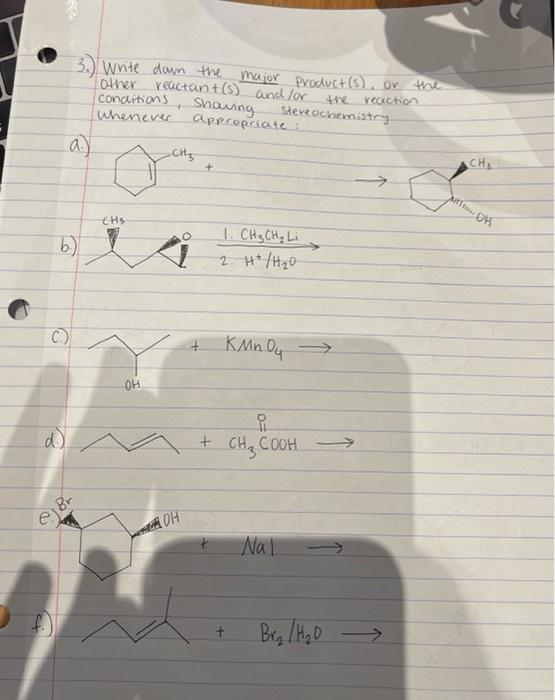 3.) Write down the major product(s), or the
other reactant(s) and/or the reaction
conditions, showing stereochemistry
whenever appropriate:
a.) CH3 + → CH3
OH
b.) CH3 O 1. CH3CH2Li
2. H+/H2O
c.) + KMnO4 →
OH
d.) + CH3COOH →
O
e.) Br OH + NaI →
f.) + Br2/H2O →